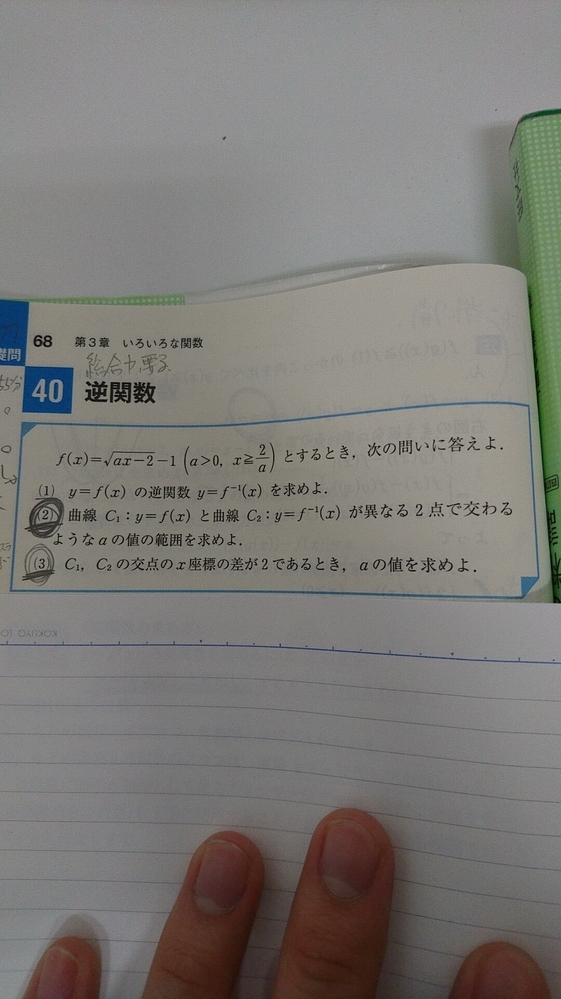 礎問
68 第3章 いろいろな関数
40 逆関数
f(x)=√ax−2−1 (a>0, x≧2/a) とするとき，次の問いに答えよ．
(1) y=f(x) の逆関数 y=f⁻¹(x) を求めよ．
(2) 曲線 C₁：y=f(x) と曲線 C₂：y=f⁻¹(x) が異なる2点で交わる
ようなaの値の範囲を求めよ．
(3) C₁，C₂ の交点のx座標の差が2であるとき，aの値を求めよ．